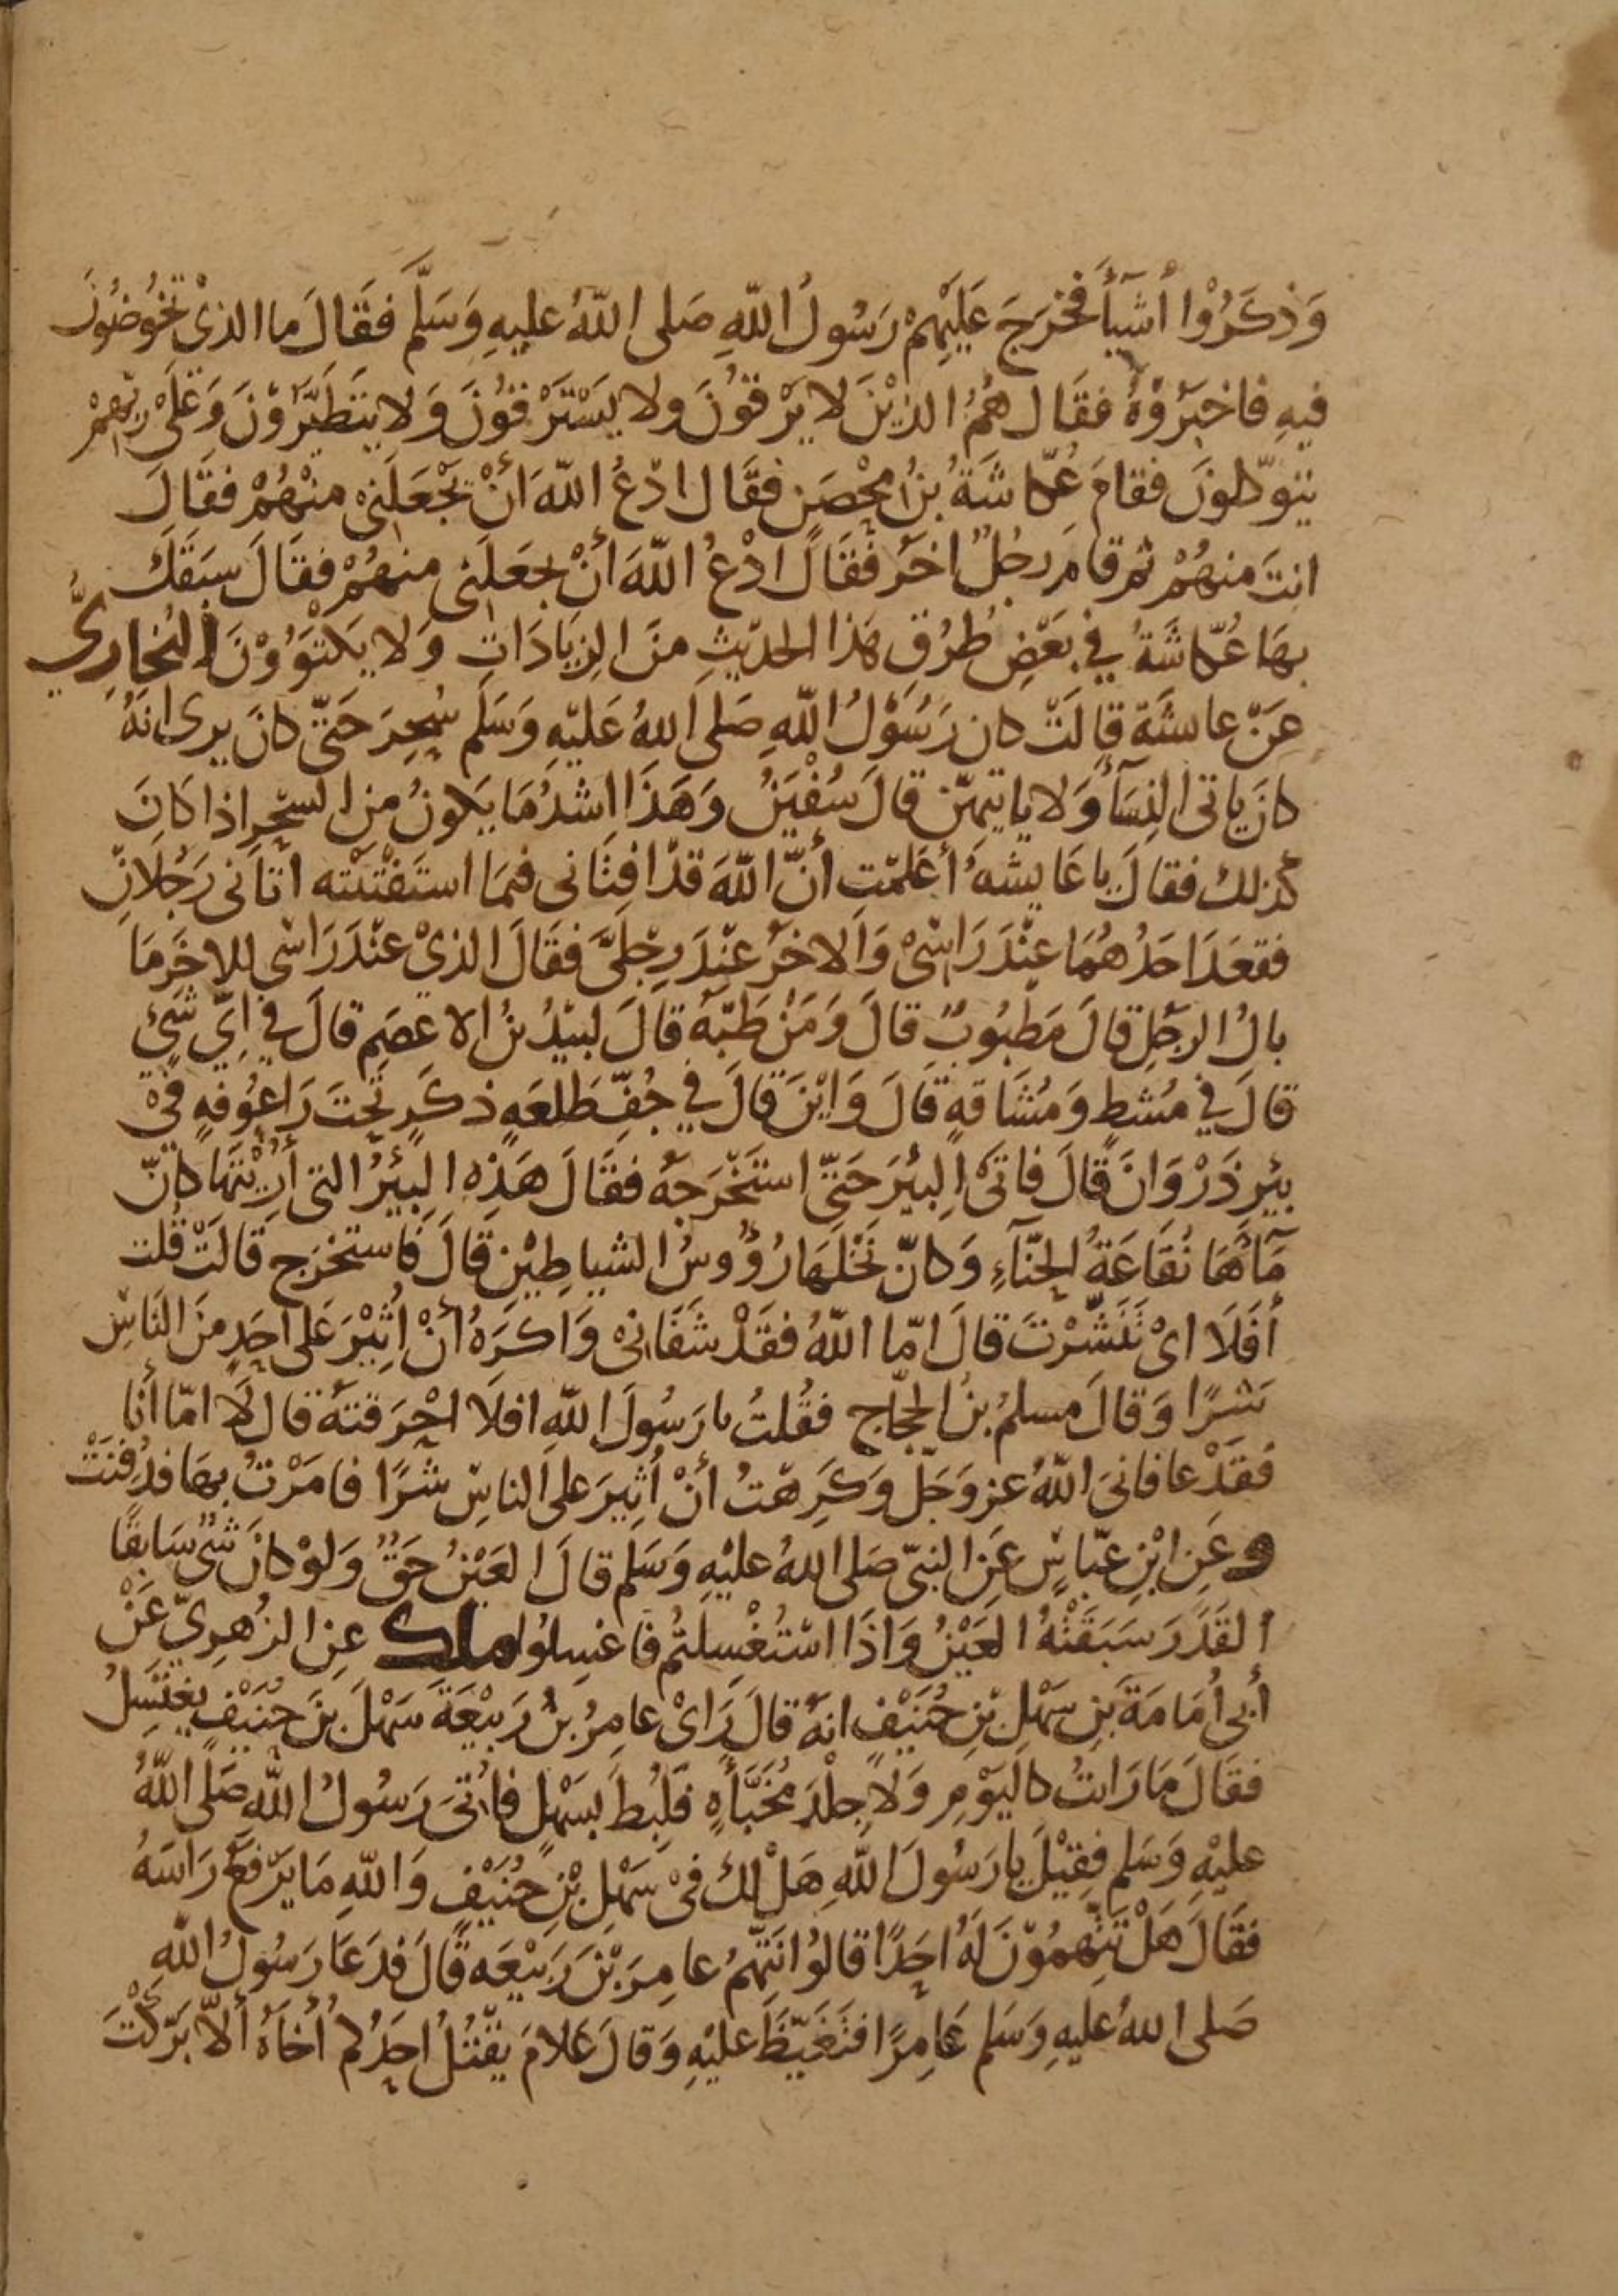 وَذَكَرُوْا أَشْيَآءَ فَخَرَجَ عَلَيْهِمْ رَسُولُ اللّٰهِ صَلى اللّٰهُ عليهِ وَسَلَّمَ فَقَالَ ما الذىْ تَخُوضُونَ
فيهِ فاخبَرُوْهُ فَقَال هُمُ الذِيْنَ لا يَرْقُوْنَ ولا يَسْتَرْقُوْنَ وَلا يتَطَيَّرُوْنَ وَعَلَى رَبِّهِمْ
يتوكّلونَ فقامَ عُكّاشَةُ بنُ مِحْصَنٍ فقَال ادْعُ اللّٰهَ أنْ يَجْعَلَنِى منْهُمْ فقَالَ
انتَ منهُمْ ثم قامَ رجُلٌ اخَر فَقَالَ ادْعُ اللّٰهَ أَنْ يجعَلَنِى منهُمْ فقَالَ سَبَقَكَ
بهَا عُكّاشَةُ في بَعْضِ طُرُقِ هَذا الحديْثِ منَ الزيَادَاتِ وَلا يَكْتَوُوْنَ البُخَارِيُّ
عَنْ عايشَة قالَتْ كان رَسُوْلُ اللّٰهِ صَلى اللهُ عَليْهِ وَسَلم سُحِرَ حَتّى كانَ يرى انهُ
كانَ ياتى النِسَآءَ وَلا ياتيهِنّ قالَ سُفْيَنُ وَهَذَا اشدُ مَا يَكونُ من السحْرِ اذا كَانَ
كذلك فقالَ يا عَايشهُ أعَلمْتِ أنّ اللّٰهَ قدْ افتَانى فيمَا استَفْتَيْته اتَانى رَجُلانِ
فقعَدَ احَدُهُمَا عنْدَ رَاسْىْ وَالاخَرُ عنْدَ رِجْلَىَّ فقَالَ الذىْ عنْدَ رَاسْى للاخَرِ مَا
بالُ الرجُلِ قالَ مَطْبُوبٌ قالَ وَمَنْ طَبّهُ قالَ لبيْدُ بنُ الاعْصَمِ قالَ في اىِّ شَيْءٍ
قالَ في مُشْطٍ وَمُشَاقَةٍ قَالَ وَايْنَ قَالَ في جُفِّ طَلعَةٍ ذكَرٍ تَحْتَ رَاعُوْفَةٍ فِىْ
بيْرِ ذَرْوَانَ قَالَ فاتىْ البئرَ حَتّى استَخْرَجَهُ فقَالَ هَذِهِ البِيْئرُ التى أُرِيْتُهَا كانّ
مَآءَهَا نُقَاعَةُ الحِنَّآءِ وَكانّ نَخْلَهَا رُؤُوسُ الشياطِيْنِ قَالَ فَاستخْرَج قَالَتْ قُلت
أفَلَا اىْ تَنَشَّرْتَ قالَ امّا اللّٰهُ فقَدْ شَفَانِىْ وَاكرَهُ أنْ اُثِيْرَ عَلى احَدٍ منَ النّاسِ
شَرًّا وَقالَ مسلمُ بنُ الحجّاجِ فقُلتُ يا رَسُولَ اللّٰهِ افَلَا احْرَقتَهُ قَالَ لَا امّا أنا
فَقَدْ عافانىَ اللّٰهُ عز وَجَلّ وَكَرِهْتُ أنْ أُثِيرَ على الناسِ شَرًّا فامَرْتُ بهَا فدُفِنَتْ
وعَنِ ابْنِ عَبّاسٍ عَنِ النبىّ صَلى اللهُ عليْهِ وَسَلم قالَ العَيْنُ حَقٌ وَلوْ كانَ شىْ سَابقًا
القَدَرَ سَبَقَتْهُ العَيْنُ وَاذَا اسْتُغْسِلتُمْ فَاغسِلوُا مالك عنِ الزُهرِيّ عَنْ
أبى أُمَامَةَ بنِ سَهْلِ بْنِ حُنَيْفٍ انهُ قالَ رَاىْ عامِرُ بْنُ رَبيْعَةَ سَهْلَ بنَ حُنَيْفٍ يغْتَسِلُ
فقَالَ مَا رَايتُ كاليَوْمِ وَلَا جلْدَ مُخَبَّأَةٍ فَلُبِطَ بسَهْلٍ فأُتىَ رَسُولُ اللّٰهِ صَلَّى اللّٰهُ
عليْهِ وَسَلم فقِيْلَ يا رَسُولَ اللّٰهِ هَلْ لكَ فىْ سَهْلِ بْنِ حُنَيْفٍ وَاللّٰهِ مَا يَرْفَعُ رَاسَهُ
فقَالَ هَلْ تَتّهِمُوْنَ لَهُ احَدًا قالُوا نَتّهِمُ عامِرَ بْنَ رَبيْعَه قَالَ فدَعَا رَسُولُ اللّٰهِ
صَلى اللهُ عليهِ وَسَلم عَامِرًا فتَغَيّظَ عليْهِ وَقالَ عَلامَ يقْتُلُ احَدُكم أخَاهُ ألّا بَرّكْتَ